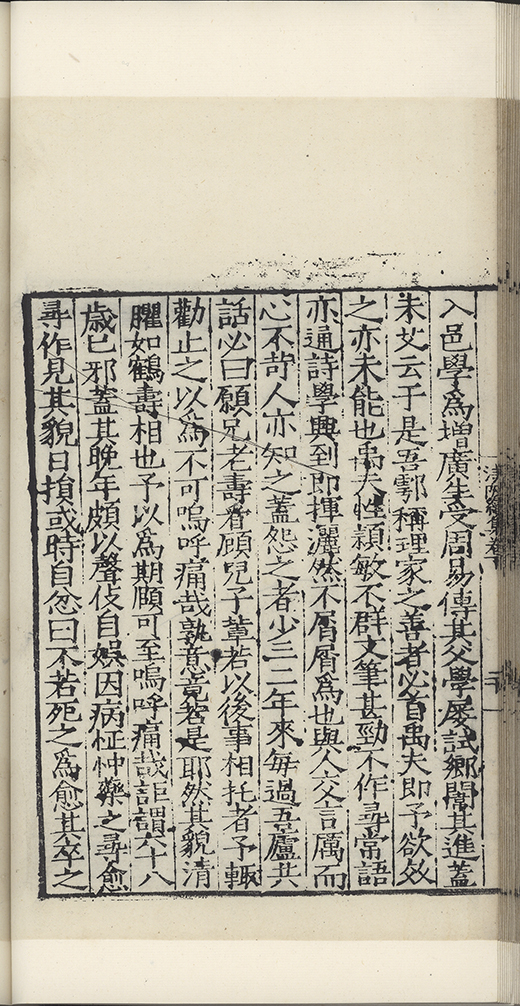 入邑學爲增廣生受周易傳其父學屡試鄉闈其進蓋
未艾云于是吾鄠稱理家之善者必首禹夫即予欲效
之亦未能也禹夫性穎敏不群文筆甚勁不作尋常語
亦通詩學興到即揮灑然不屑屑爲也與人交言厲而
心不苛人亦知之蓋怨之者少三二年來每過吾廬共
話必曰願兄老壽看顧兒子軰若以後事相托者予輙
勸止之以爲不可嗚呼痛哉孰意竟若是耶然其貌清
臞如鶴壽相也予以爲期頥可至嗚呼痛哉詎謂六十八
歳已邪蓋其晚年頗以聲伎自娛因病怔忡藥之尋愈
尋作見其貌日損或時自忿曰不若死之爲愈其卒之